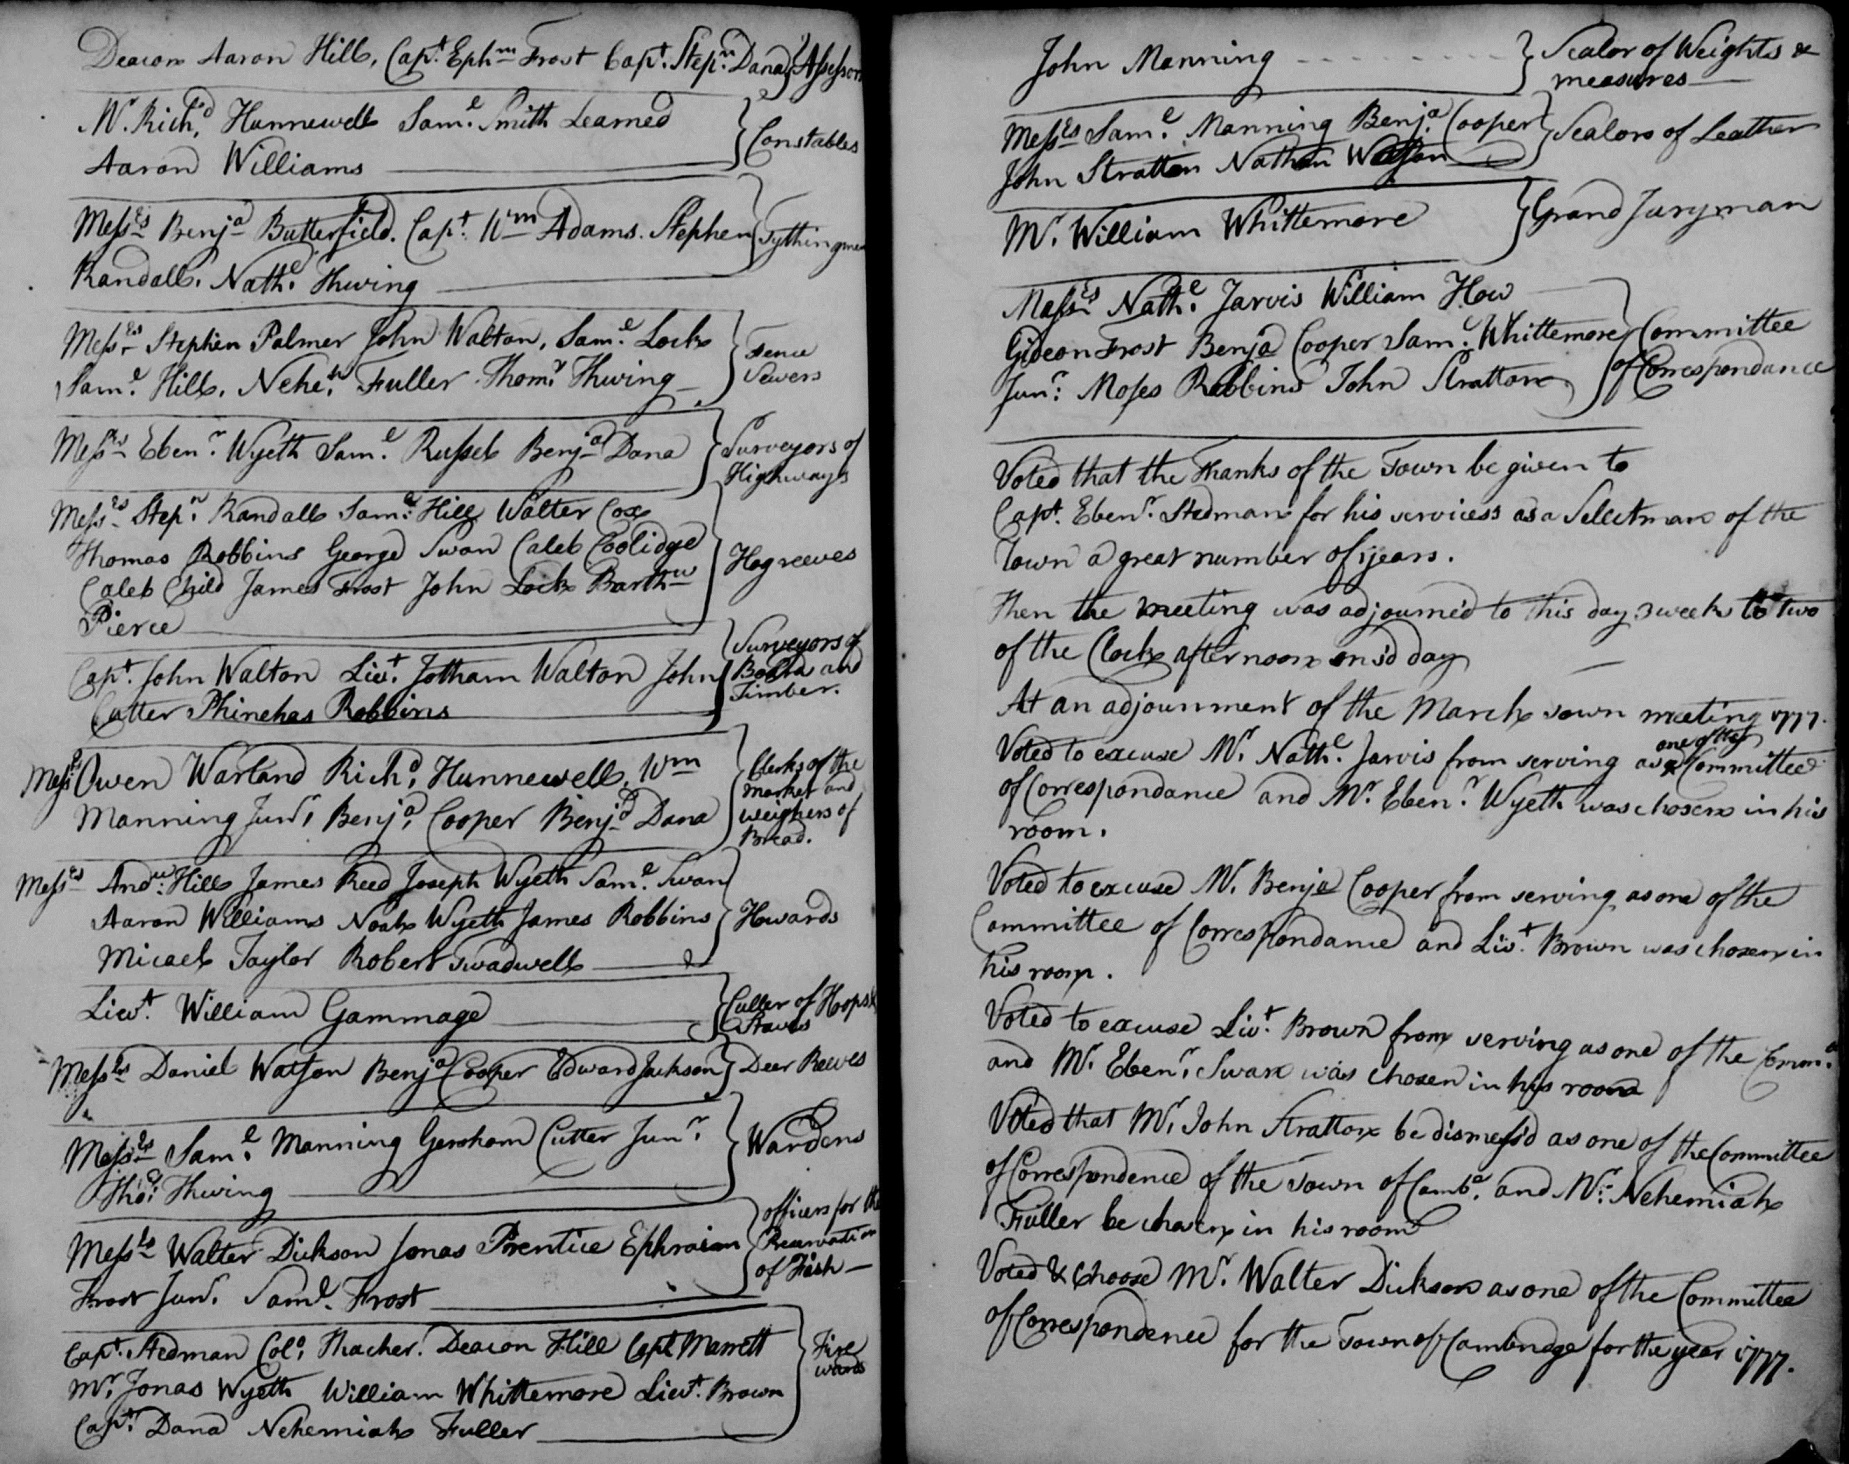 Deacon Aaron Hill, Capt. Ephm Frost Capt. Stepn. Dana } Assessors
Mr. Richd. Hunnewell Saml. Smith Learned
Aaron Williams
} Constables
Messrs Benja Butterfield. Capt. Wm Adams. Stephen
Randall. Nathl. Thwing
} Tythingmen
Messrs Stephen Palmer John Walton, Saml. Lock
Saml. Hill, Neheh. Fuller Thoms. Thwing
} Fence
Vewers
Messrs Ebenr. Wyeth Saml. Russel Benja Dana
} Surveyors of
Highways
Messrs Stepn. Randall Saml. Hill Walter Cox
Thomas Robbins George Swan Caleb Coolidge
Caleb Child James Frost John Lock Barthw
Pierce
} Hogreeves
Capt. John Walton Livt. Jotham Walton John
Cutter Phinehas Robbins
} Surveyors of
Boards and
Timber.
Messrs Owen Warland Richd. Hunnewell, Wm
Manning Junr, Benja. Cooper Benja Dana
} Clerks of the
market and
weighers of
Bread.
Messrs Andw. Hill James Reed Joseph Wyeth Saml. Swan
Aaron Williams Noah Wyeth James Robbins
Micael Taylor Robert Twadwell
} Howards
Lievt. William Gammage
} Culler of Hoops &
Staves
Messrs Daniel Watson Benja Cooper Edward Jackson } Deer Reeves
Messrs Saml. Manning Gershom Cutter Junr.
Thos. Thwing
} Wardens
Messrs Walter Dickson Jonas Prentice Ephraim
Frost Junr. Saml. Frost
} officers for the
Reservation
of Fish
Capt. Stedman Colo. Thacher. Deacon Hill Capt Marrett
Mr. Jonas Wyeth William Whittemore Lievt. Brown
Capt. Dana Nehemiah Fuller
} Fire
wards
John Manning
} Sealor of Weights &
measures
Messrs Saml. Manning Benja. Cooper
John Stratton Nathan Watson
} Sealors of Leather
Mr. William Whittemore } Grand Juryman
Messrs Nathl. Jarvis William How
Gideon Frost Benja Cooper Saml. Whittemore
Junr. Moses Robbins John Stratton
} Committee
of Correspondance
Voted that the Thanks of the Town be given to
Capt. Ebenr. Stedman for his servicess as a Sellectman of the
Town a great number of years.
Then the meeting was adjourned to this day 3 weeks to two
of the Clock afternoon on sd day
At an adjournment of the March town meeting 1777.
Voted to excuse Mr. Nathl. Jarvis from serving as one of the Committee
of Correspondance and Mr. Ebenr. Wyeth was chosen in his
room.
Voted to excuse Mr. Benja Cooper from serving as one of the
Committee of Correspondance and Livt. Brown was chosen in
his room.
Voted to excuse Livt. Brown from serving as one of the Comm.
and Mr. Ebenr. Swan was chosen in his room
Voted that Mr. John Stratton be dismess'd as one of the Committee
of Correspondence of the Town of Camba. and Mr. Nehemiah
Fuller be chosen in his room
Voted & Choose Mr. Walter Dickson as one of the Committee
of Correspondence for the Town of Cambridge for the year 1777.